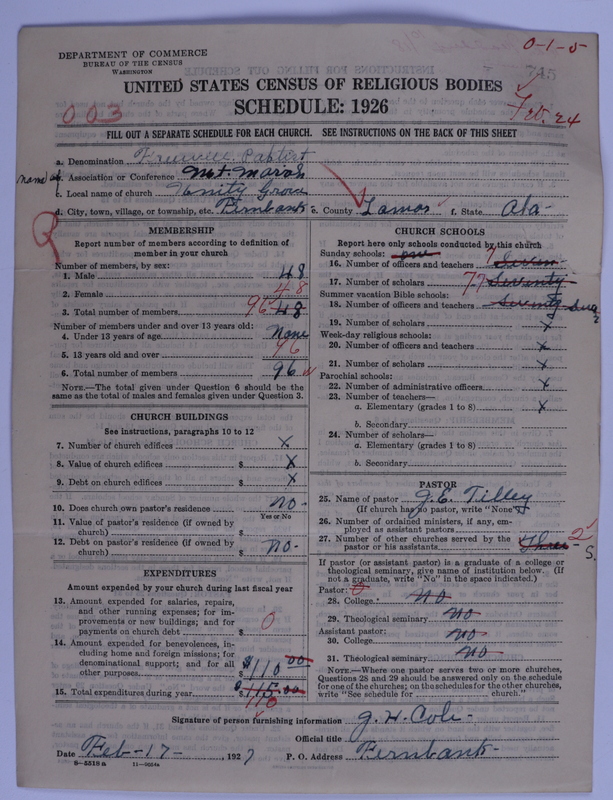 0-1-5
DEPARTMENT OF COMMERCE
BUREAU OF THE CENSUS
WASHINGTON
745
UNITED STATES CENSUS OF RELIGIOUS BODIES
SCHEDULE: 1926
003
Feb. 24
FILL OUT A SEPARATE SCHEDULE FOR EACH CHURCH. SEE INSTRUCTIONS ON THE BACK OF THIS SHEET
a. Denomination Freewill Babtist
name of b. Association or Conference Mt. Marah
c. Local name of church Unity Grove
d. City, town, village, or township, etc. Fernbank e. County Lamar f. State Ala-
MEMBERSHIP
Report number of members according to definition of
member in your church
Number of members, by sex:
1. Male 48
2. Female 48
3. Total number of members 96 48
Number of members under and over 13 years old:
4. Under 13 years of age None
5. 13 years old and over 96
6. Total number of members 96
NOTE.—The total given under Question 6 should be
the same as the total of males and females given under Question 3.
CHURCH BUILDINGS
See instructions, paragraphs 10 to 12
7. Number of church edifices X
8. Value of church edifices $ X
9. Debt on church edifices $ X
10. Does church own pastor's residence no-
Yes or No
11. Value of pastor's residence (if owned by
church) $
12. Debt on pastor's residence (if owned by
church) $ no-
EXPENDITURES
Amount expended by your church during last fiscal year
13. Amount expended for salaries, repairs,
and other running expenses; for im-
provements or new buildings; and for
payments on church debt $ 0
14. Amount expended for benevolences, in-
cluding home and foreign missions; for
denominational support; and for all
other purposes $ $110 00
15. Total expenditures during year $ $115.00
110
CHURCH SCHOOLS
Report here only schools conducted by this church
Sunday schools: one
16. Number of officers and teachers 7 Seven
17. Number of scholars 77 Seventy-
Summer vacation Bible schools:
18. Number of officers and teachers Seventy Seven
19. Number of scholars X
Week-day religious schools:
20. Number of officers and teachers X
21. Number of scholars X
Parochial schools:
22. Number of administrative officers X
23. Number of teachers—
a. Elementary (grades 1 to 8) X
b. Secondary
24. Number of scholars—
a. Elementary (grades 1 to 8)
b. Secondary
PASTOR
25. Name of pastor J. E. Tilley
(If church has no pastor, write "None")
26. Number of ordained ministers, if any, em-
ployed as assistant pastors
27. Number of other churches served by the
pastor or his assistants Three - 2 S.
If pastor (or assistant pastor) is a graduate of a college or
theological seminary, give name of institution below. (If
not a graduate, write "No" in the space indicated.)
Pastor: 0
28. College no
29. Theological seminary no
Assistant pastor:
30. College no
31. Theological seminary no
NOTE.—Where one pastor serves two or more churches,
Questions 28 and 29 should be answered only on the schedule
for one of the churches; on the schedules for the other churches,
write "See schedule for church."
Signature of person furnishing information J. H. Cole-
Official title
Date Feb-17- 1927 P. O. Address Fernbank-
8-5518 a 11-9054a